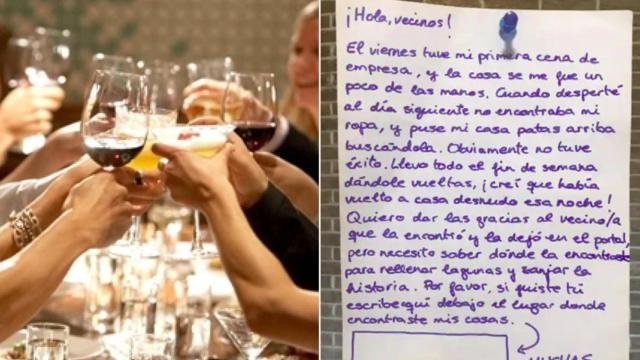 ¡Hola, vecinos!
El viernes tuve mi primera cena de
empresa, y la casa se me fue un
poco de las manos. Cuando desperté
al día siguiente no encontraba mi
ropa, y puse mi casa patas arriba
buscándola. Obviamente no tuve
éxito. Llevo todo el fin de semana
dándole vueltas, ¡creí que había
vuelto a casa desnudo esa noche!
Quiero dar las gracias al vecino/a
que la encontró y la dejó en el portal,
pero necesito saber dónde la encontraste
para rellenar lagunas y zanjar la
historia. Por favor, si fuiste tú
escribe aquí debajo el lugar donde
encontraste mis cosas.